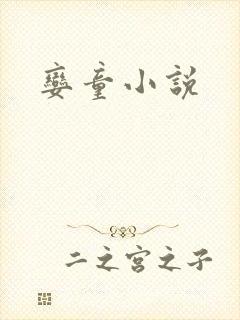 孌童小說
二之宮之子